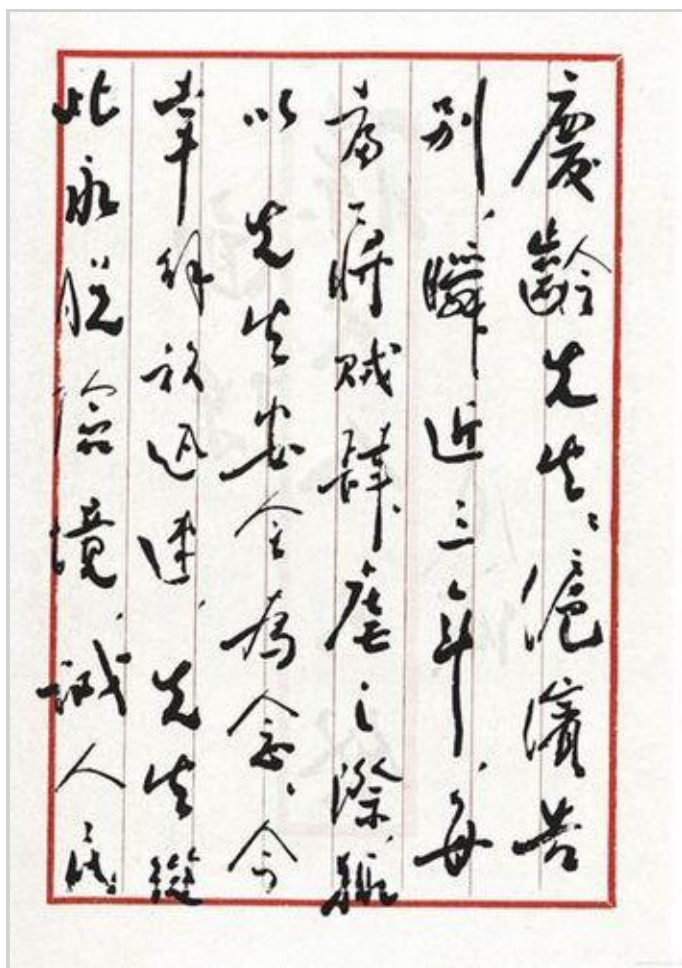 慶齡先生：滬濱告
別，瞬近三年，每
當蔣賊肆虐之際，輒
以先生安全為念。今
幸解放迅速，先生從
此永脫險境，誠人民